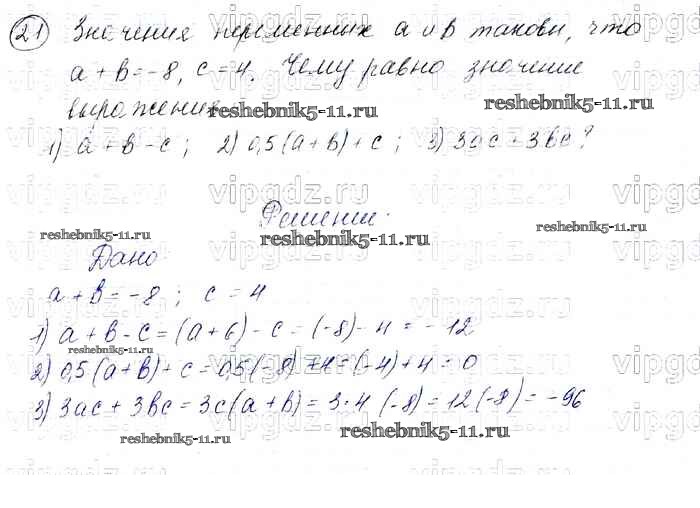 21 Значения переменных a и b таковы, что
a + b = -8, c = 4. Чему равно значение
выражения
reshebnik5-11.ru reshebnik5-11.ru
1) a + b - c; 2) 0,5(a+b)+c; 3) 3ac+3bc?
vipgdz.ru vipgdz.ru vipgdz.ru
Решение.
reshebnik5-11.ru reshebnik5-11.ru reshebnik5-11.ru
Дано
a + b = -8; c = 4
1) a + b - c = (a + b) - c = (-8) - 4 = -12
reshebnik5-11.ru reshebnik5-11.ru
2) 0,5(a+b)+c = 0,5(-8)+4 = (-4)+4 = 0
3) 3ac + 3bc = 3c(a+b) = 3·4(-8) = 12(-8) = -96
reshebnik5-11.ru reshebnik5-11.ru